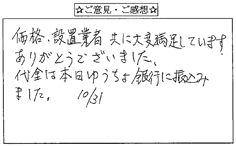 ☆ご意見・ご感想☆
価格・設置業者 共に大変満足しています。
ありがとうございました。
代金は本日ゆうちょ銀行に振込み
ました。 10/31